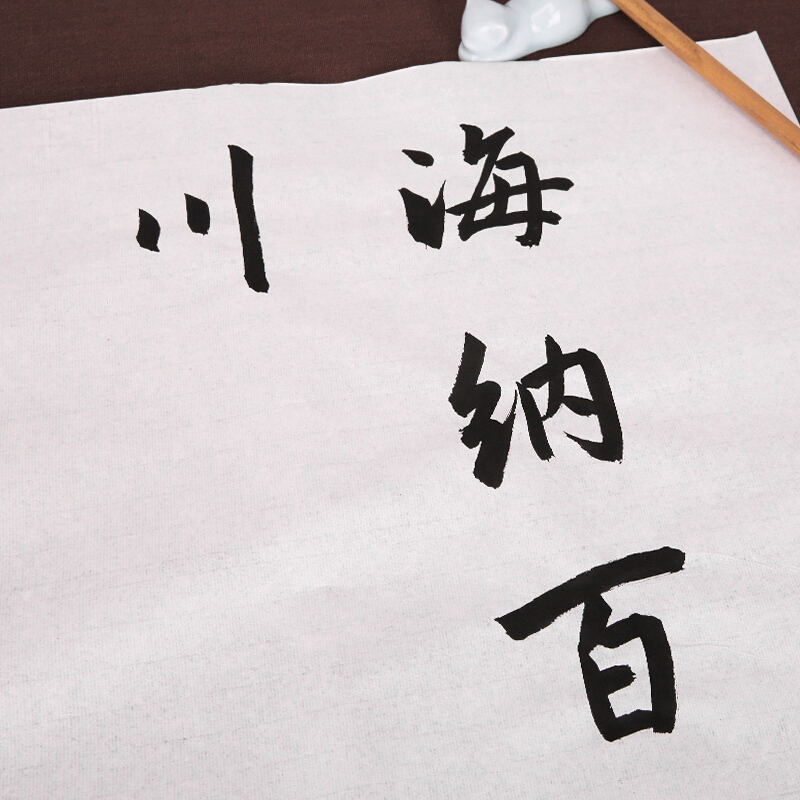 海纳百
川